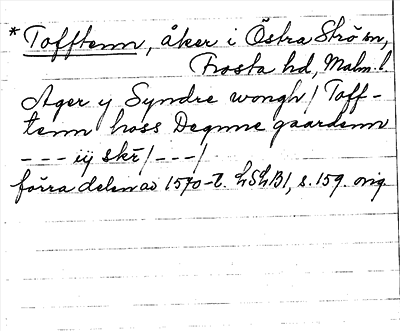 * Tofftenn, åker i Östra Strö sn,
Frosta hd, Malm. l.
Ager y Syndre wongh / Toff-
tenn hoss Degnne gaardenn
--- iij skr/ --- /
förra delen av 1570-t. LSLB1, s. 159. orig.